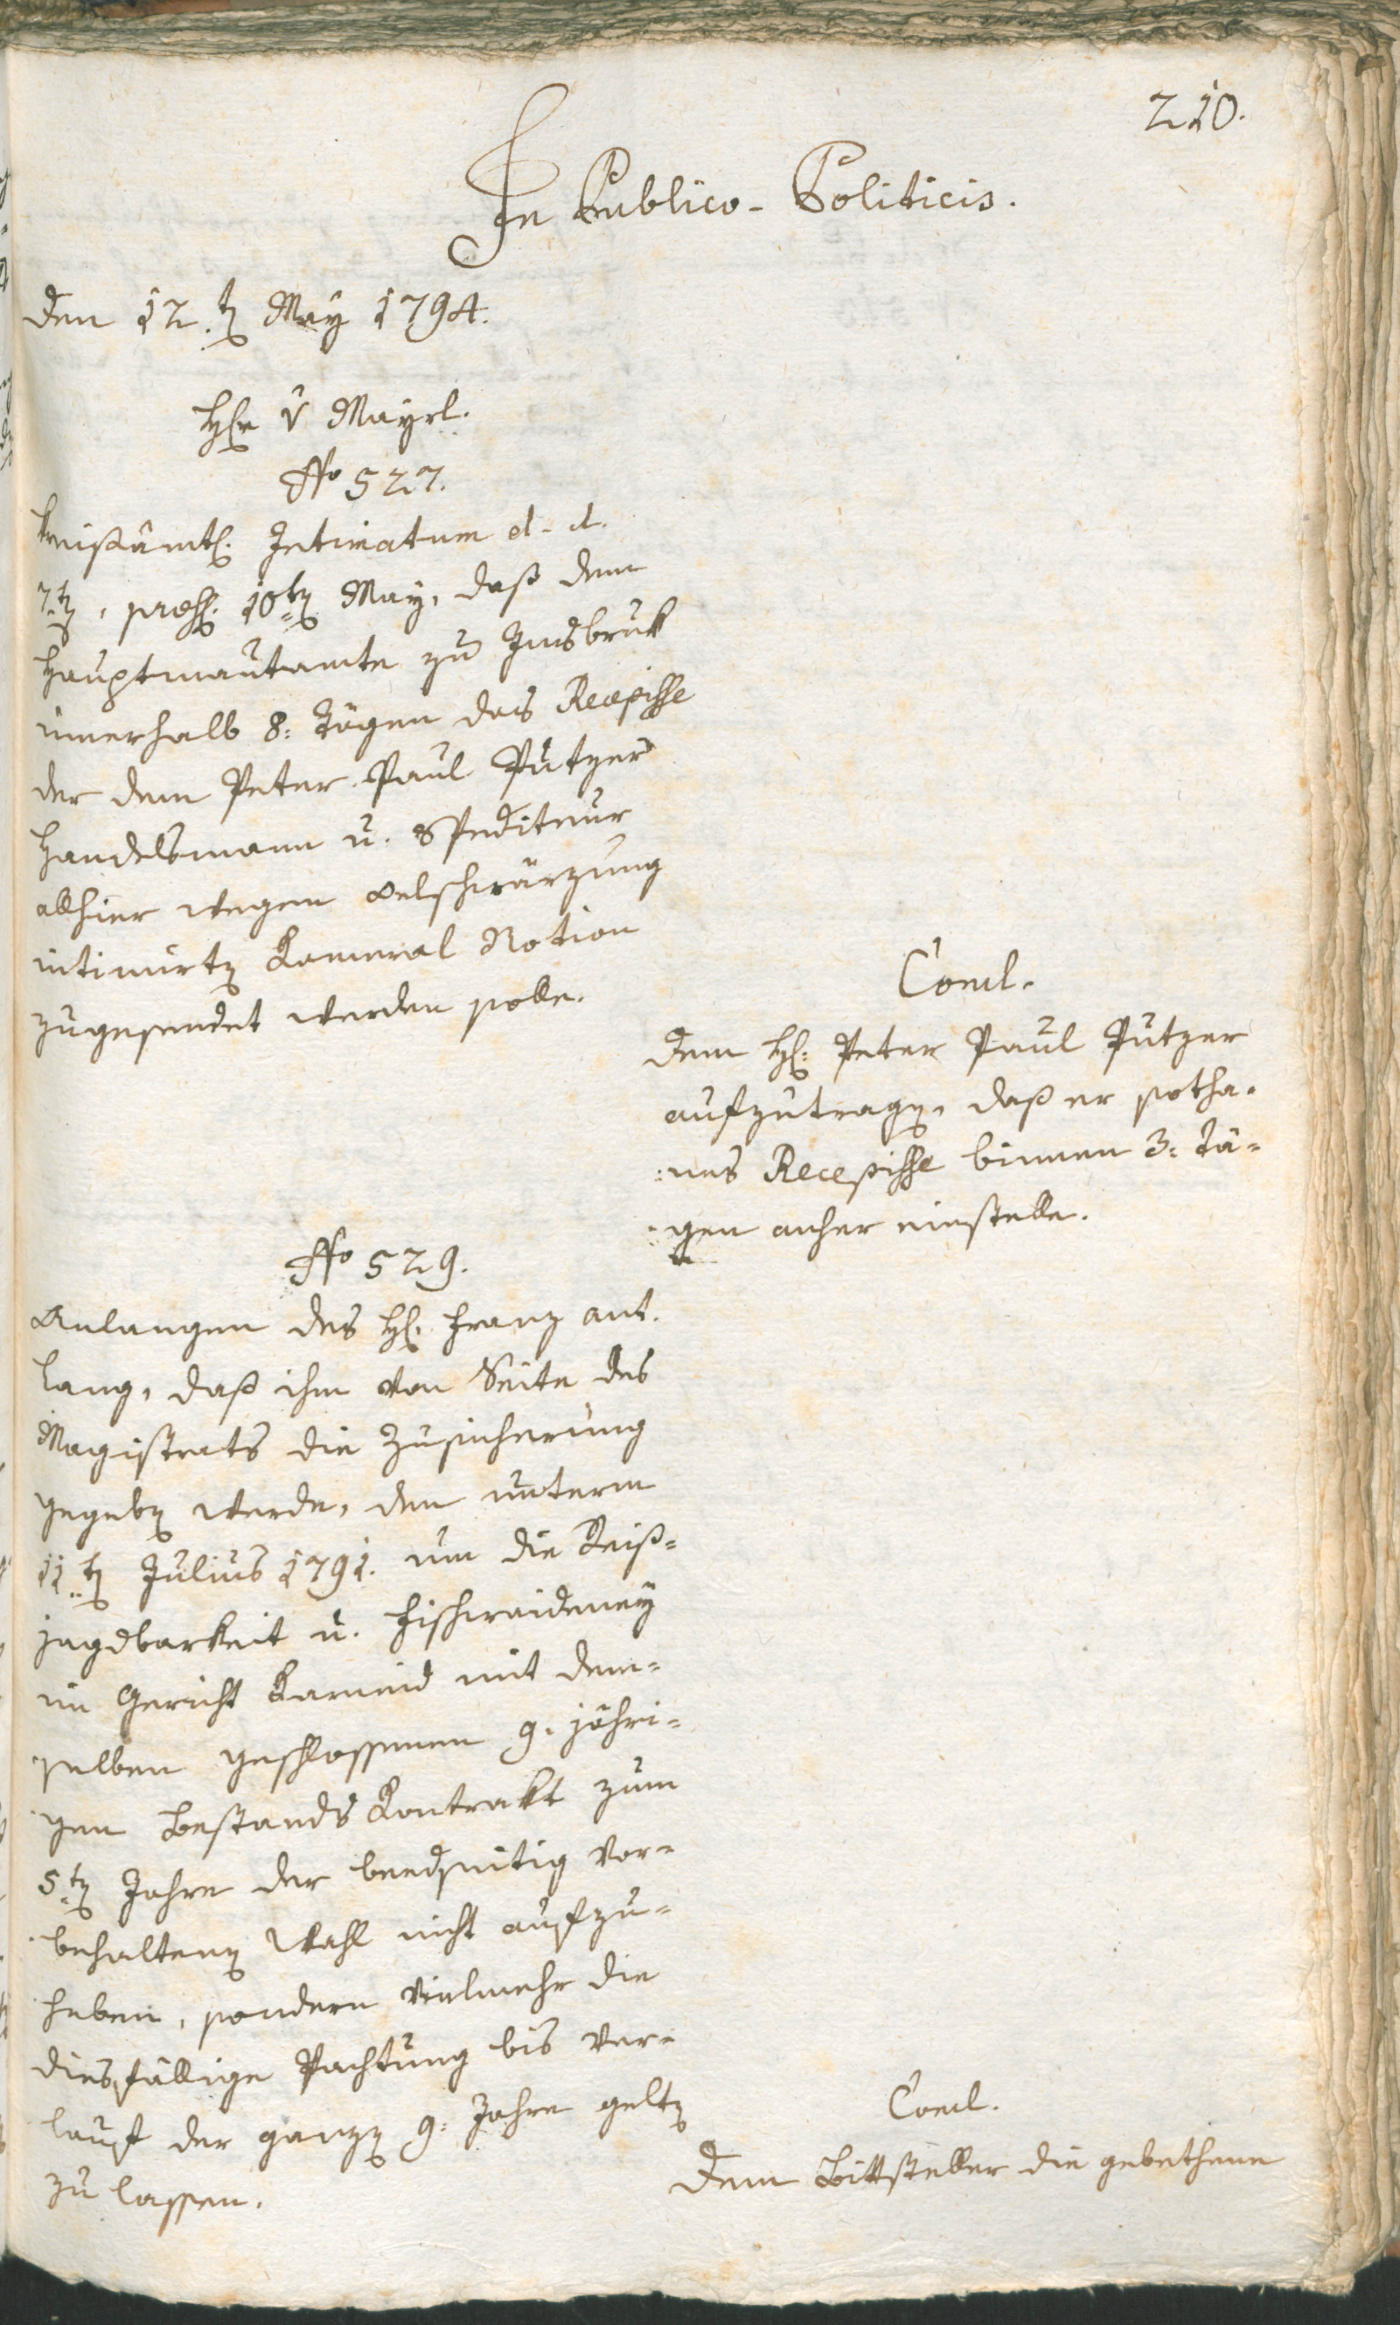 210.
In Publico-Politicis.
Den 12.ten May 1794.
H: v Mayrl.
No 527.
Kreißämtl. Intimatum d. d.
7ten, præs. 10ten May, daß dem
Hauptmautamte zu Insbruk
innerhalb 8: Tägen das Recepisse
der dem Peter Paul Putzer
Handelsmann u. Spediteur
allhier wegen Oelschwärzung
intimirten Kameral Notion
zugesendet werden solle.
Concl.
Dem H: Peter Paul Putzer
aufzutragen, daß er sotha-
:nes Recepisse binnen 3: Tä-
gen anher einstelle.
No 529.
Anlangen des H: Franz Ant.
Lang, daß ihm von Seite des
Magistrats die Zusicherung
gegeben werde, den unterm
11ten Julius 1791. um die Reiß-
jagdbarkeit u. Fischwaideney
im Gericht Karneid mit dem-
selben geschlossenen 9. jähri-
gen Bestands Kontrakt zum
5ten Jahre der beedseitig vor-
behaltenen Wahl nicht aufzu-
heben, sondern vielmehr die
diesfällige Pachtung bis Ver-
lauf der ganzen 9: Jahre gelten
zu lassen.
Concl.
Dem Bittsteller die gebethene